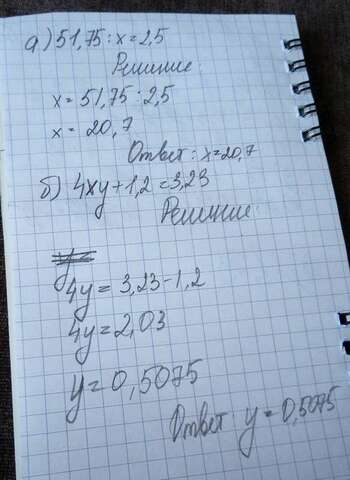 а) 51,75 : x = 2,5
Решение
x = 51,75 : 2,5
x = 20,7
Ответ: x = 20,7
б) 4xy + 1,2 = 3,23
Решение
4y = 3,23 - 1,2
4y = 2,03
y = 0,5075
Ответ y = 0,5075